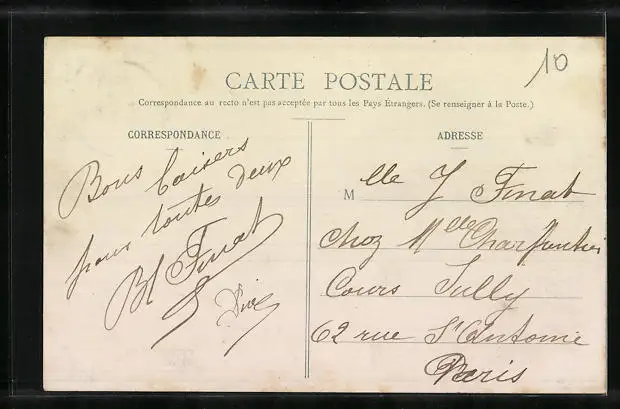 10
CARTE POSTALE
Correspondance au recto n'est pas acceptée par tous les Pays Etrangers. (Se renseigner à la Poste.)
CORRESPONDANCE
Bons baisers
pour toutes deux
Bl Finat
ADRESSE
Mlle J Finat
chez Mlle Charpentier
Cours Sully
62 rue St Antoine
Paris